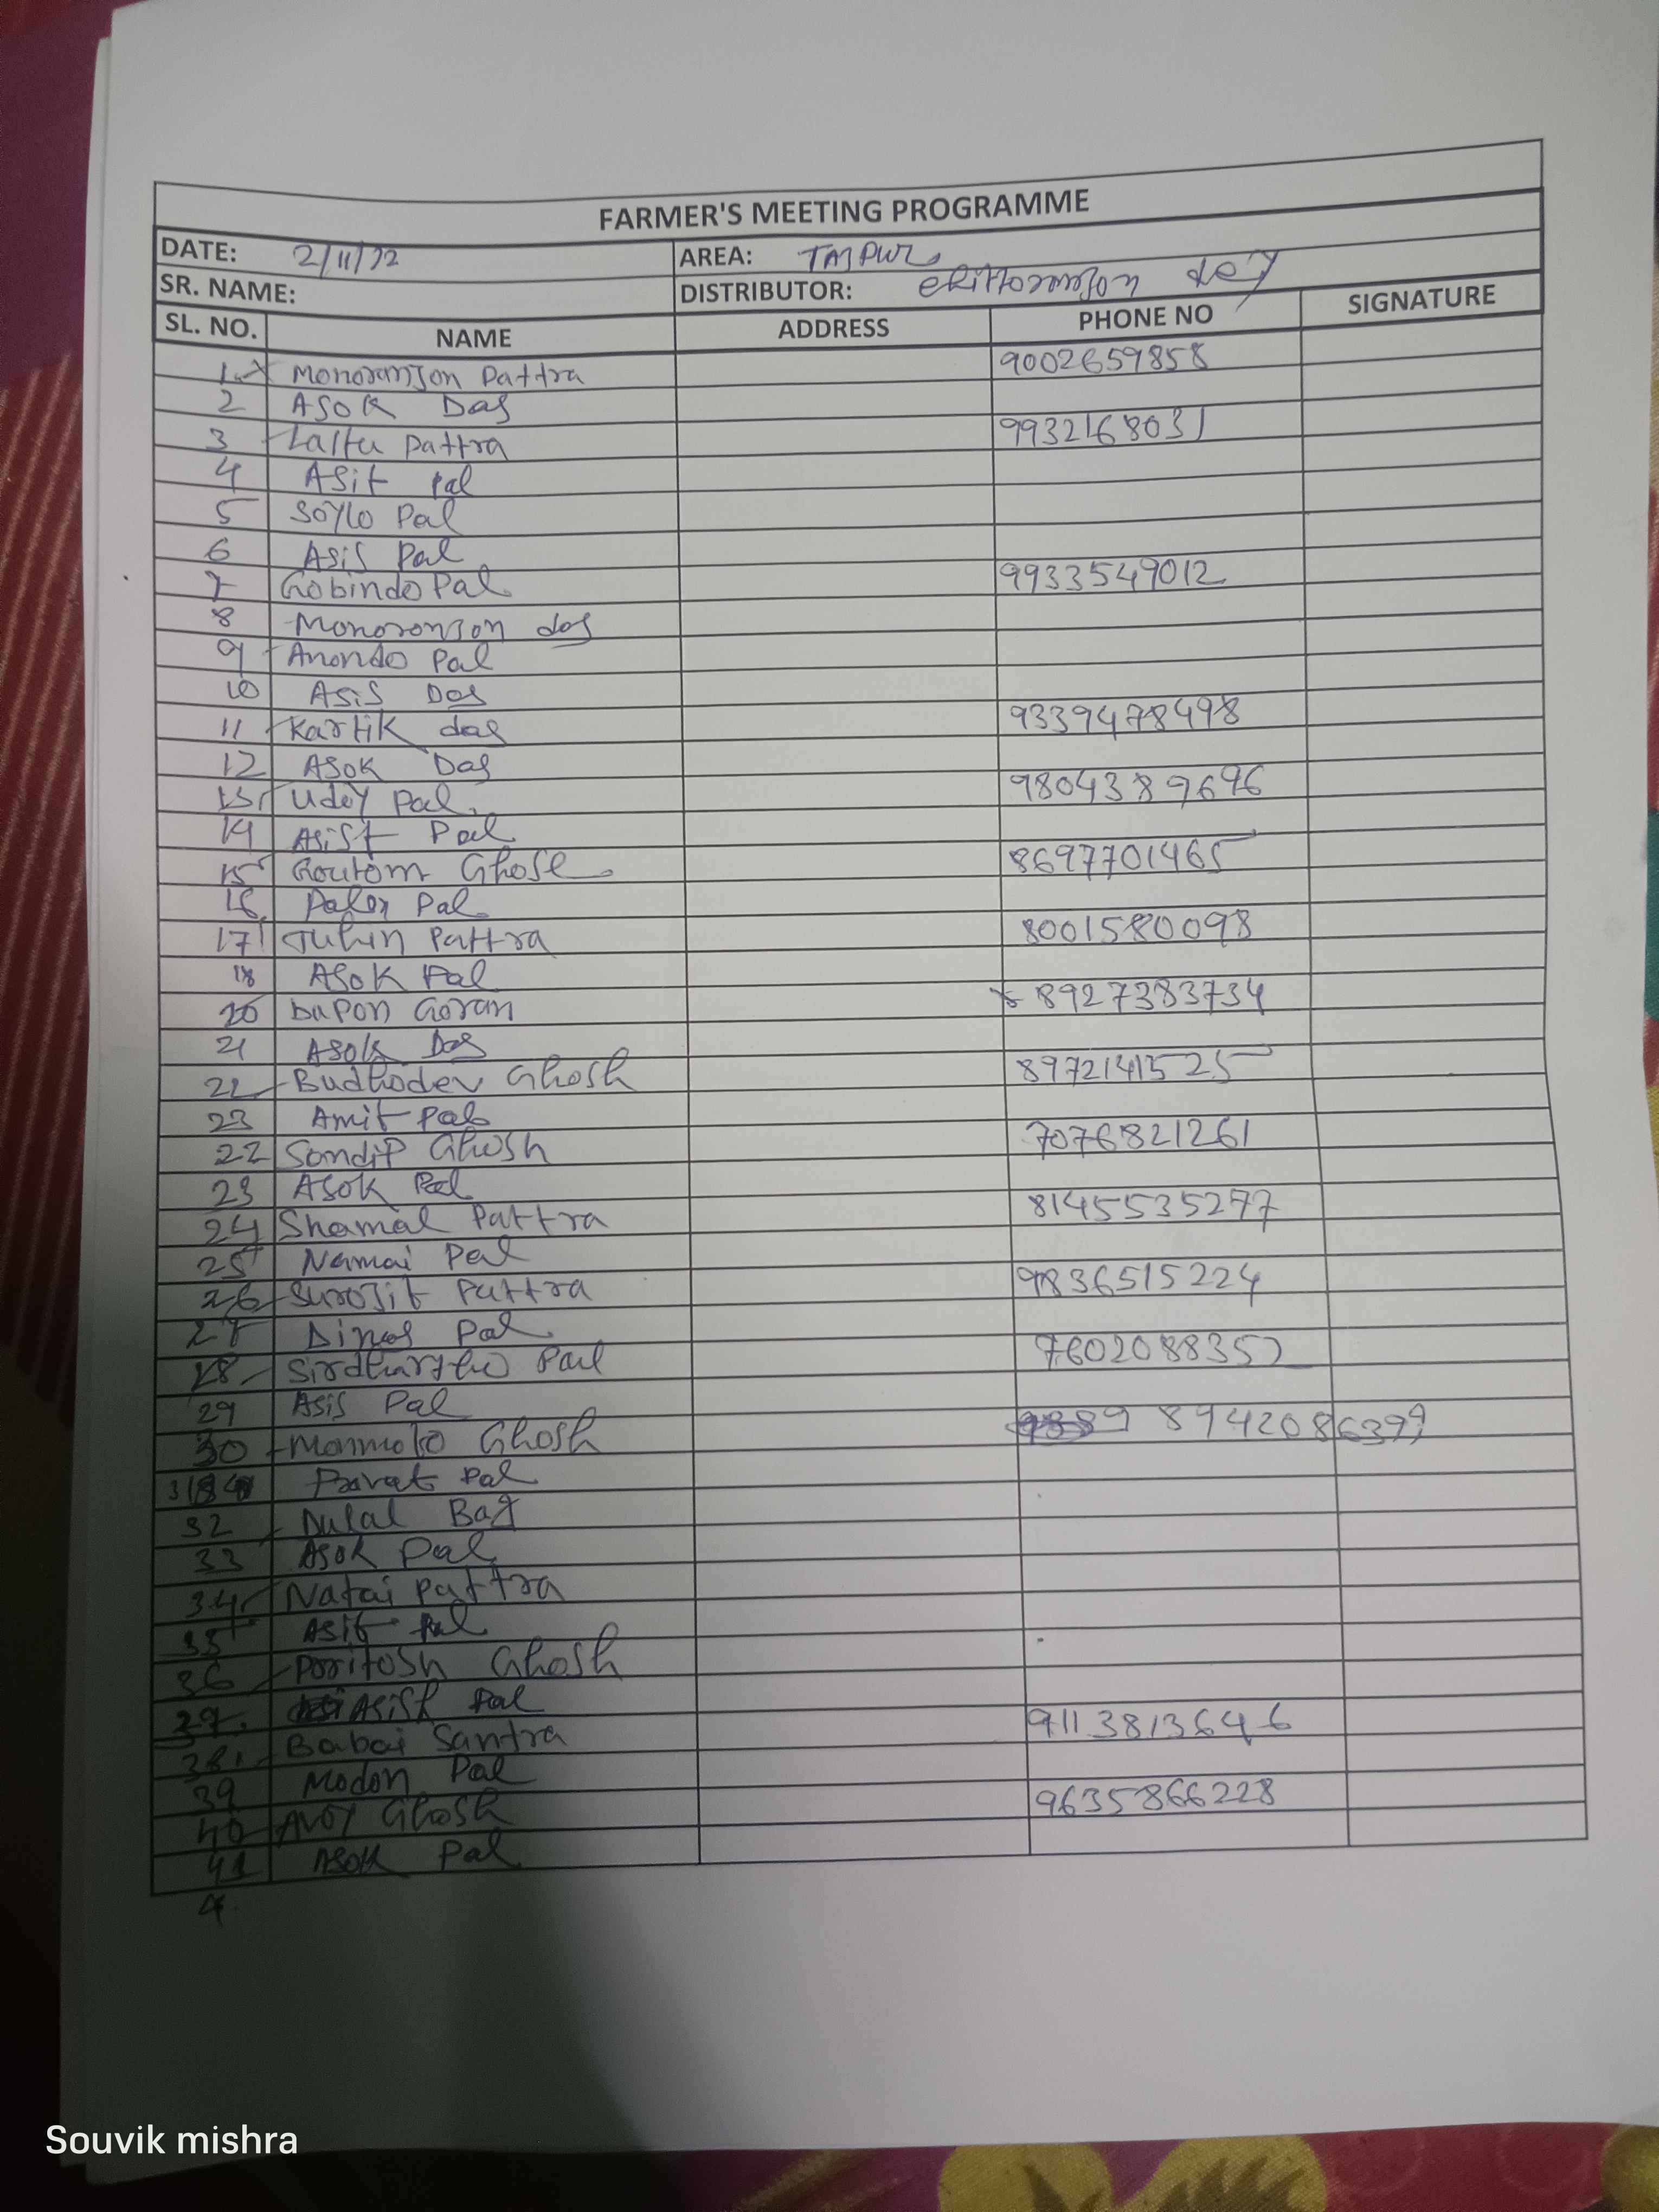 FARMER'S MEETING PROGRAMME
DATE: 2/11/22 AREA: TAJPUR
SR. NAME: DISTRIBUTOR:
SL. NO. NAME ADDRESS PHONE NO SIGNATURE
1. Monoranjon Pattra 9002659858
2 ASOK Das
3 Laltu Pattra 9932168031
4 Asit Pal
5 Pal
6 Asis Pal
7 Gobindo Pal 9933549012
8 Monoronjon das
9 Anondo Pal
10 Asis Das
11 Kartik das 9339478498
12 ASOK Das
13 Udoy Pal 9804389696
14 Asist Pal
15 Goutom Ghose 8697701465
16 Pal
17 Tuhin Pattra 8001580098
18 ASOK Pal
20 Bapon Goran 8927383734
21 ASOK Das
22 Budhodev Ghosh 8972141525
23 Amit Pal
22 Sondip Ghosh 7076821261
23 ASOK Pal
24 Shamal Pattra 8145535277
25 Namai Pal
26 Surojit Pattra 9836515224
27 Pal
28 Pal 7602088352
29 Asis Pal
30 Ghosh 8942086399
31 Pal
32 Dulal Bag
33 ASOK Pal
34 Natai Pattra
35 Asit Pal
36 Poritosh Ghosh
37. Asish Pal
38. Babai Santra 9113813646
39 Modon Pal
40 Avoy Ghosh 9635866228
41 ASOK Pal
4
Souvik mishra